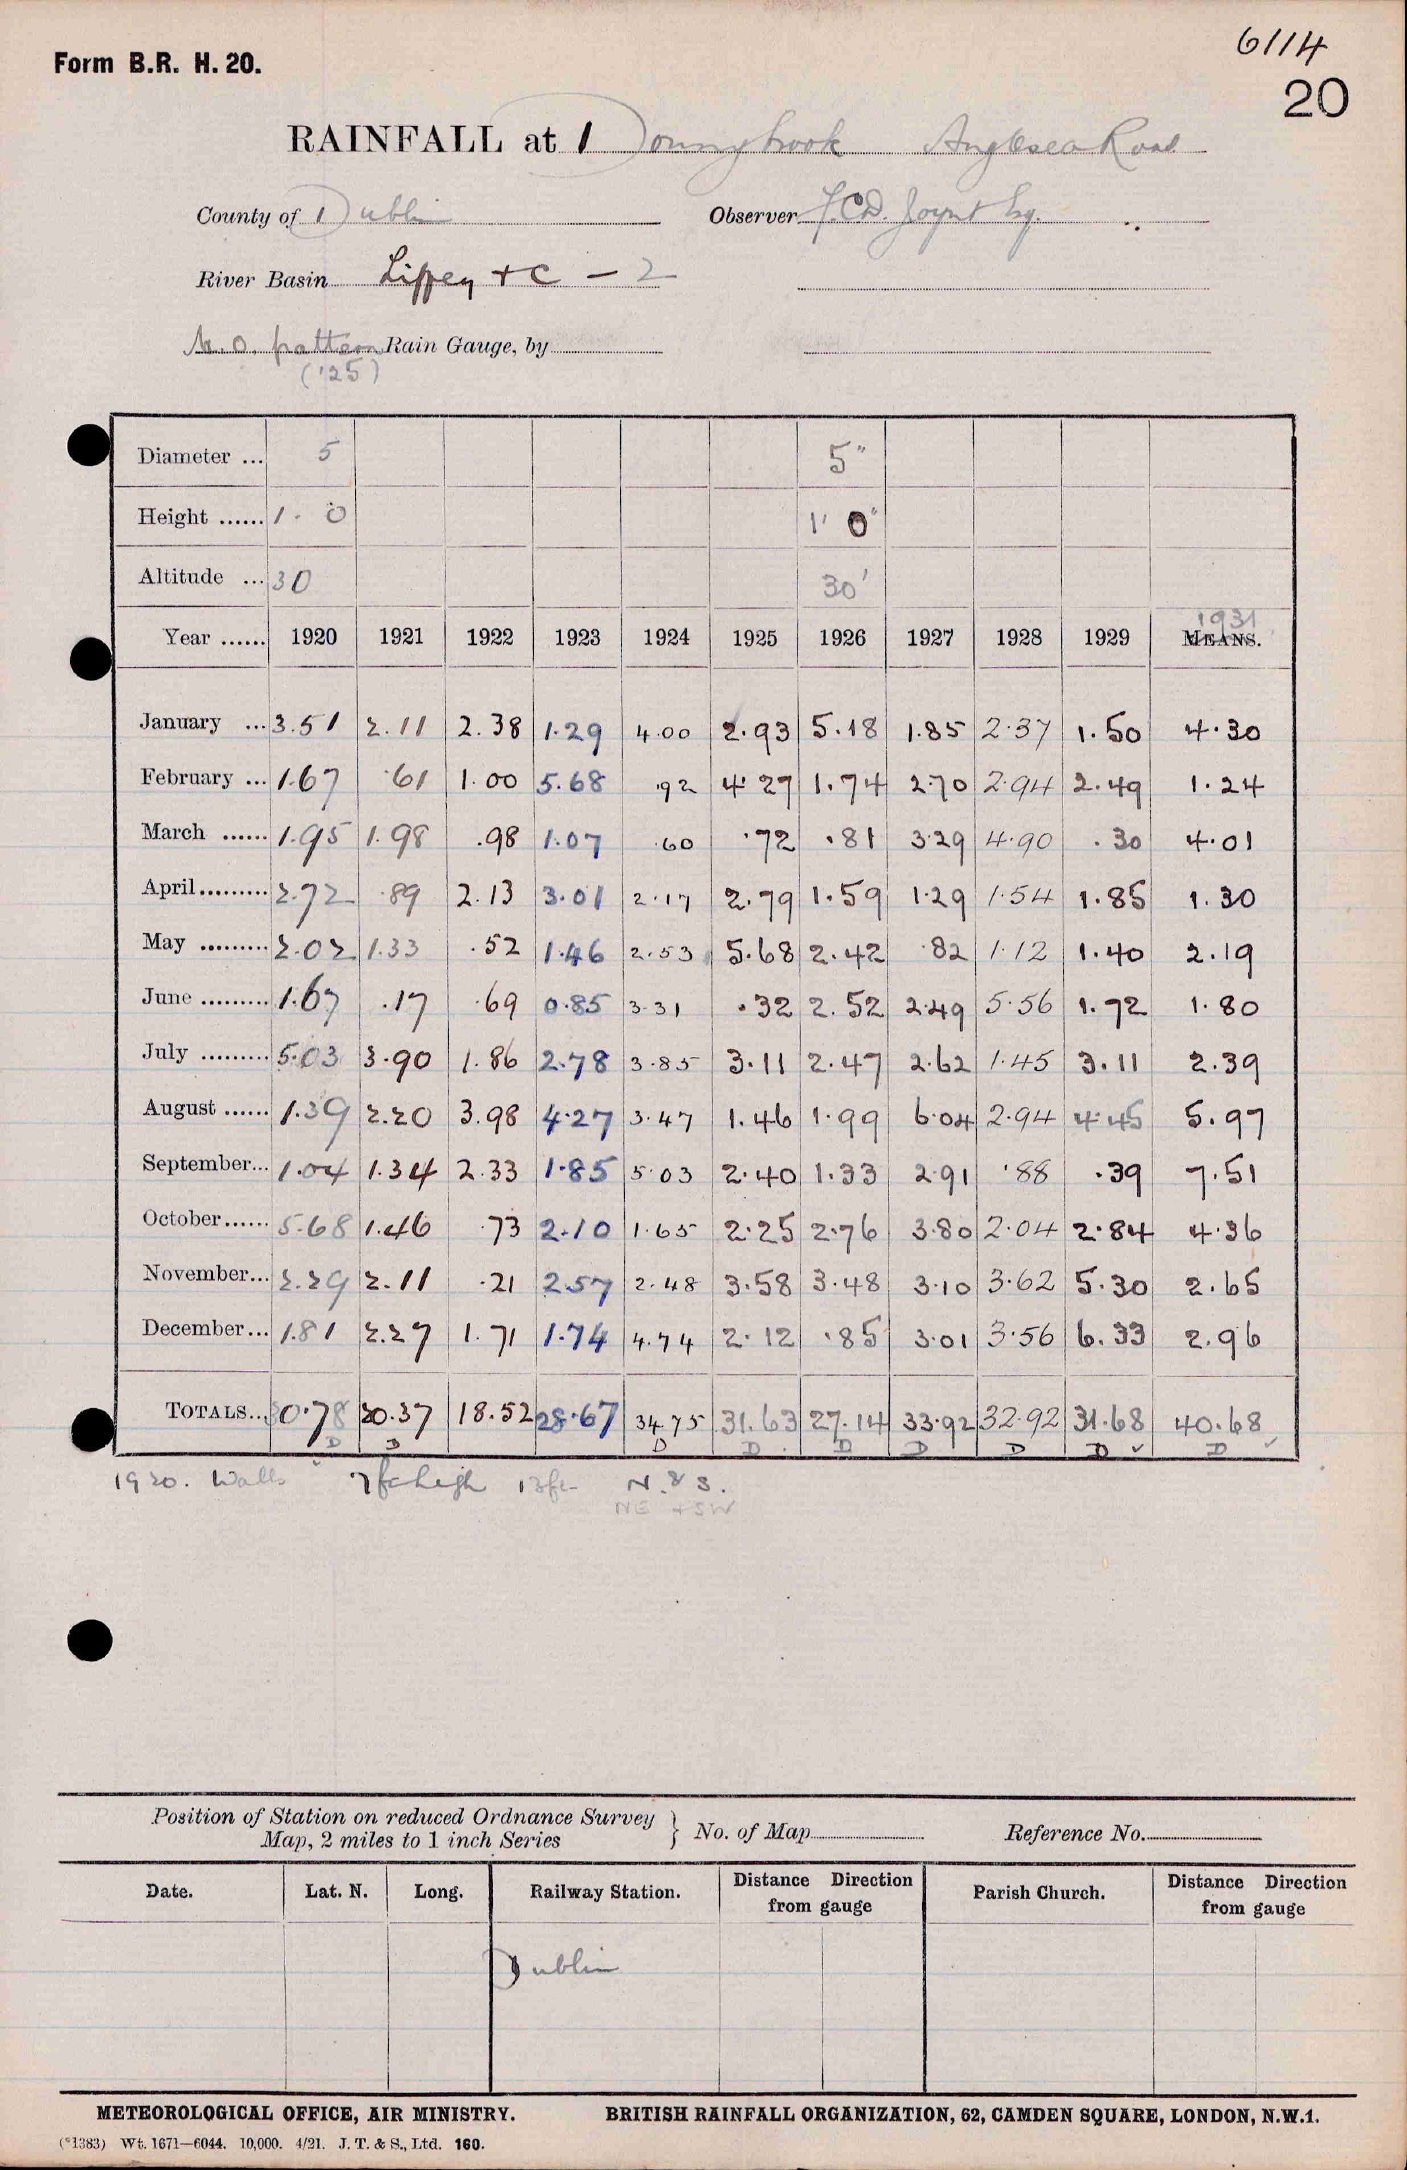 6114
Form B.R. H. 20.
20
RAINFALL at Donnybrook Anglesea Road
County of Dublin Observer F.C.D. Joynt Esq.
River Basin Liffey + C - 2
M.O. pattern Rain Gauge, by
('25)
Diameter ... 5 5"
Height ...... 1 . 0 1' 0"
Altitude ... 30 30'
1931
Year ...... 1920 1921 1922 1923 1924 1925 1926 1927 1928 1929 MEANS.
January ... 3.51 2.11 2.38 1.29 4.00 2.93 5.18 1.85 2.37 1.50 4.30
February ... 1.67 .61 1.00 5.68 .92 4.27 1.74 2.70 2.94 2.49 1.24
March ...... 1.95 1.98 .98 1.07 .60 .72 .81 3.29 4.90 .30 4.01
April......... 2.72 .89 2.13 3.01 2.17 2.79 1.59 1.29 1.54 1.85 1.30
May ......... 2.02 1.33 .52 1.46 2.53 5.68 2.42 .82 1.12 1.40 2.19
June ......... 1.67 .17 .69 0.85 3.31 .32 2.52 2.49 5.56 1.72 1.80
July ......... 5.03 3.90 1.86 2.78 3.85 3.11 2.47 2.62 1.45 3.11 2.39
August ...... 1.39 2.20 3.98 4.27 3.47 1.46 1.99 6.04 2.94 4.45 5.97
September... 1.04 1.34 2.33 1.85 5.03 2.40 1.33 2.91 .88 .39 7.51
October...... 5.68 1.46 .73 2.10 1.65 2.25 2.76 3.80 2.04 2.84 4.36
November... 2.29 2.11 .21 2.57 2.48 3.58 3.48 3.10 3.62 5.30 2.65
December... 1.81 2.27 1.71 1.74 4.74 2.12 .85 3.01 3.56 6.33 2.96
TOTALS... 30.78 20.37 18.52 28.67 34.75 31.63 27.14 33.92 32.92 31.68 40.68
D D D D D D D D ✓ D ✓
1920. Walls 7ft high 13ft N. & S.
NE + SW
Position of Station on reduced Ordnance Survey
Map, 2 miles to 1 inch Series } No. of Map Reference No.
Date. Lat. N. Long. Railway Station. Distance Direction from gauge Parish Church. Distance Direction from gauge
Dublin
METEOROLOGICAL OFFICE, AIR MINISTRY. BRITISH RAINFALL ORGANIZATION, 62, CAMDEN SQUARE, LONDON, N.W.1.
(*1383) Wt. 1671—6044. 10,000. 4/21. J. T. & S., Ltd. 160.